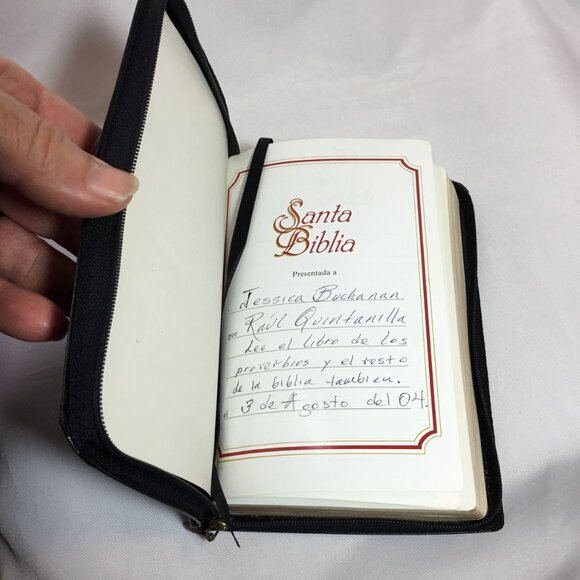 Santa
Biblia
Presentada a
Jessica Buchanan
por Raúl Quintanilla
Lee el libro de los
proverbios y el resto
de la biblia tambien.
el 3 de Agosto del 04.